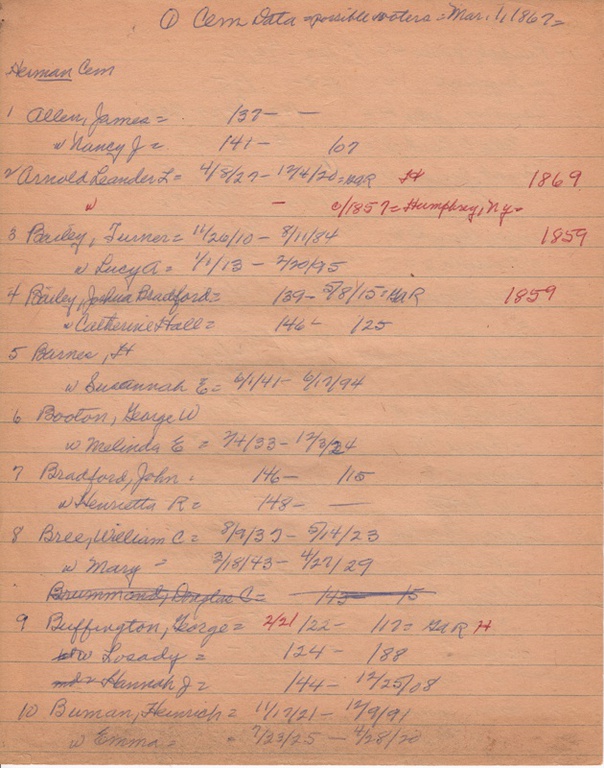 ① Cem Data = possible voters = Mar. 1, 1867 =
Herman Cem
1 Allen, James = 137 - -
w Nancy J = 141 - 107
2 Arnold Leander L = 4/8/27 - 12/4/20 = GAR H 1869
w - c/1857 = Humphrey, Ny =
3 Bailey, Turner = 11/26/10 - 8/11/84 1859
w Lucy A = 1/1/13 - 2/20/95
4 Bailey, Joshua Bradford = 139 - 5/8/15 = GAR 1859
w Catherine Hall = 146 - 125
5 Barnes, H
w Susannah E = 6/1/41 - 6/17/94
6 Booton, George W
w Melinda E = 7/4/33 - 12/3/24
7 Bradford, John = 146 - 115
w Henrietta R = 148 - -
8 Bree, William C = 8/9/37 - 5/14/23
w Mary = 3/18/43 - 4/27/29
Brummond, Douglas C = 145 15
9 Buffington, George = 2/21/22 - 117 = GAR H
w Losady = 124 - 188
w Hannah J = 144 - 12/25/08
10 Buman, Heinrich = 11/17/21 - 12/9/91
w Emma = = 7/23/25 - 4/28/20